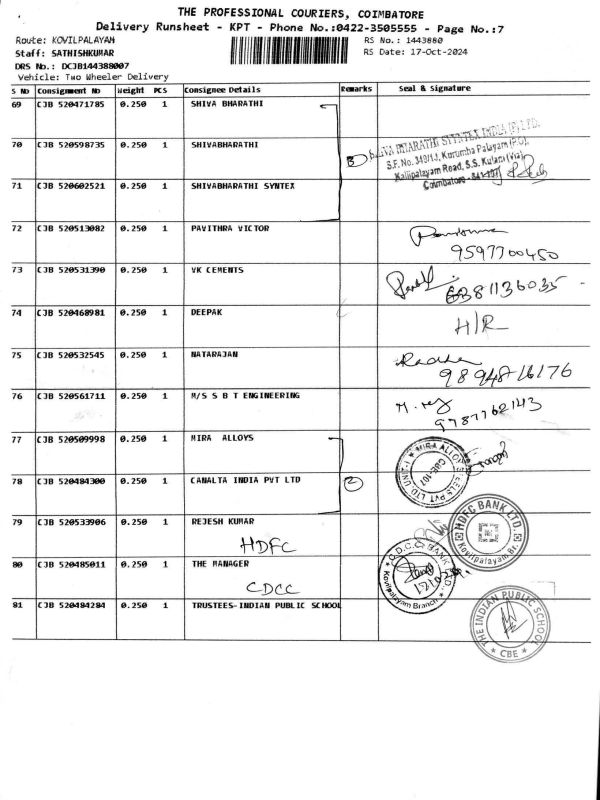 THE PROFESSIONAL COURIERS, COIMBATORE
Delivery Runsheet - KPT - Phone No.:0422-3505555 - Page No.:7
Route: KOVILPALAYAM
RS No.: 1443880
Staff: SATHISHKUMAR
RS Date: 17-Oct-2024
DRS No.: DCJB144388007
Vehicle: Two Wheeler Delivery
S No Consignment No Weight PCS Consignee Details Remarks Seal & Signature
69 CJB 520471785 0.250 1 SHIVA BHARATHI
70 CJB 520598735 0.250 1 SHIVABHARATHI
3 SHIVA BHARATHI SYNTEX INDIA (P) LTD.
S.F. No. 349/1J, Kurumba Palayam (P.O),
Kalipalayam Road, S.S. Kulam (Via),
Coimbatore - 641 107
71 CJB 520602521 0.250 1 SHIVABHARATHI SYNTEX
72 CJB 520513082 0.250 1 PAVITHRA VICTOR
9597700450
73 CJB 520531390 0.250 1 VK CEMENTS
6381136035
74 CJB 520468981 0.250 1 DEEPAK
H/R
75 CJB 520532545 0.250 1 NATARAJAN
Radha
9894816176
76 CJB 520561711 0.250 1 M/S S B T ENGINEERING
9787762143
77 CJB 520509998 0.250 1 MIRA ALLOYS
MIRA ALLOY STEELS PVT LTD UNIT-I
CBE-107
78 CJB 520484300 0.250 1 CANALTA INDIA PVT LTD 2
79 CJB 520533906 0.250 1 REJESH KUMAR
HDFC
HDFC BANK LTD.
Kovilpalayam Br.
80 CJB 520485011 0.250 1 THE MANAGER
CDCC
C.D.C.C. BANK
Kovilpalayam Branch
81 CJB 520484284 0.250 1 TRUSTEES-INDIAN PUBLIC SCHOOL
THE INDIAN PUBLIC SCHOOL
CBE